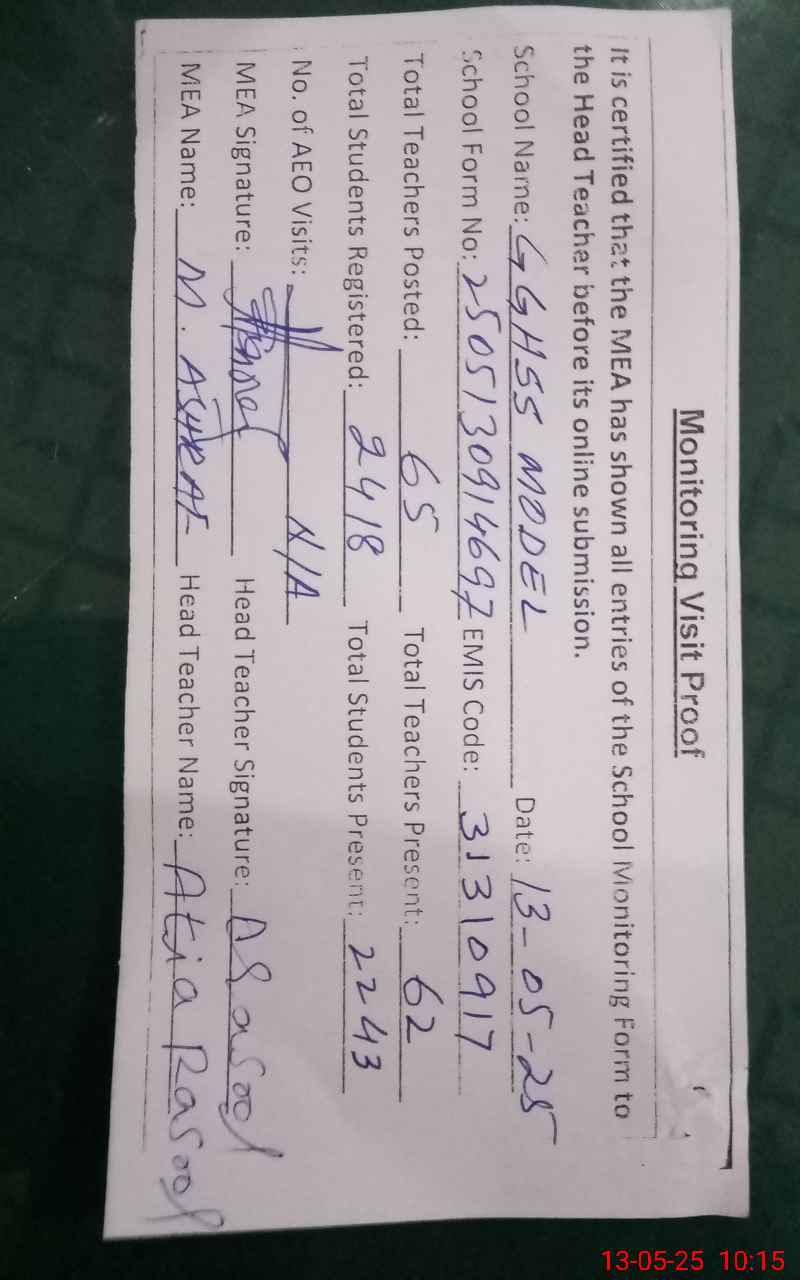 Monitoring Visit Proof
It is certified that the MEA has shown all entries of the School Monitoring Form to
the Head Teacher before its online submission.
School Name: GGHSS MODEL Date: 13-05-25
School Form No: 2505130914697 EMIS Code: 31310917
Total Teachers Posted: 65 Total Teachers Present: 62
Total Students Registered: 2418 Total Students Present: 2243
No. of AEO Visits: N/A
MEA Signature: Head Teacher Signature: ARasool
MEA Name: M. ASHRAF Head Teacher Name: Atia Rasool
13-05-25 10:15